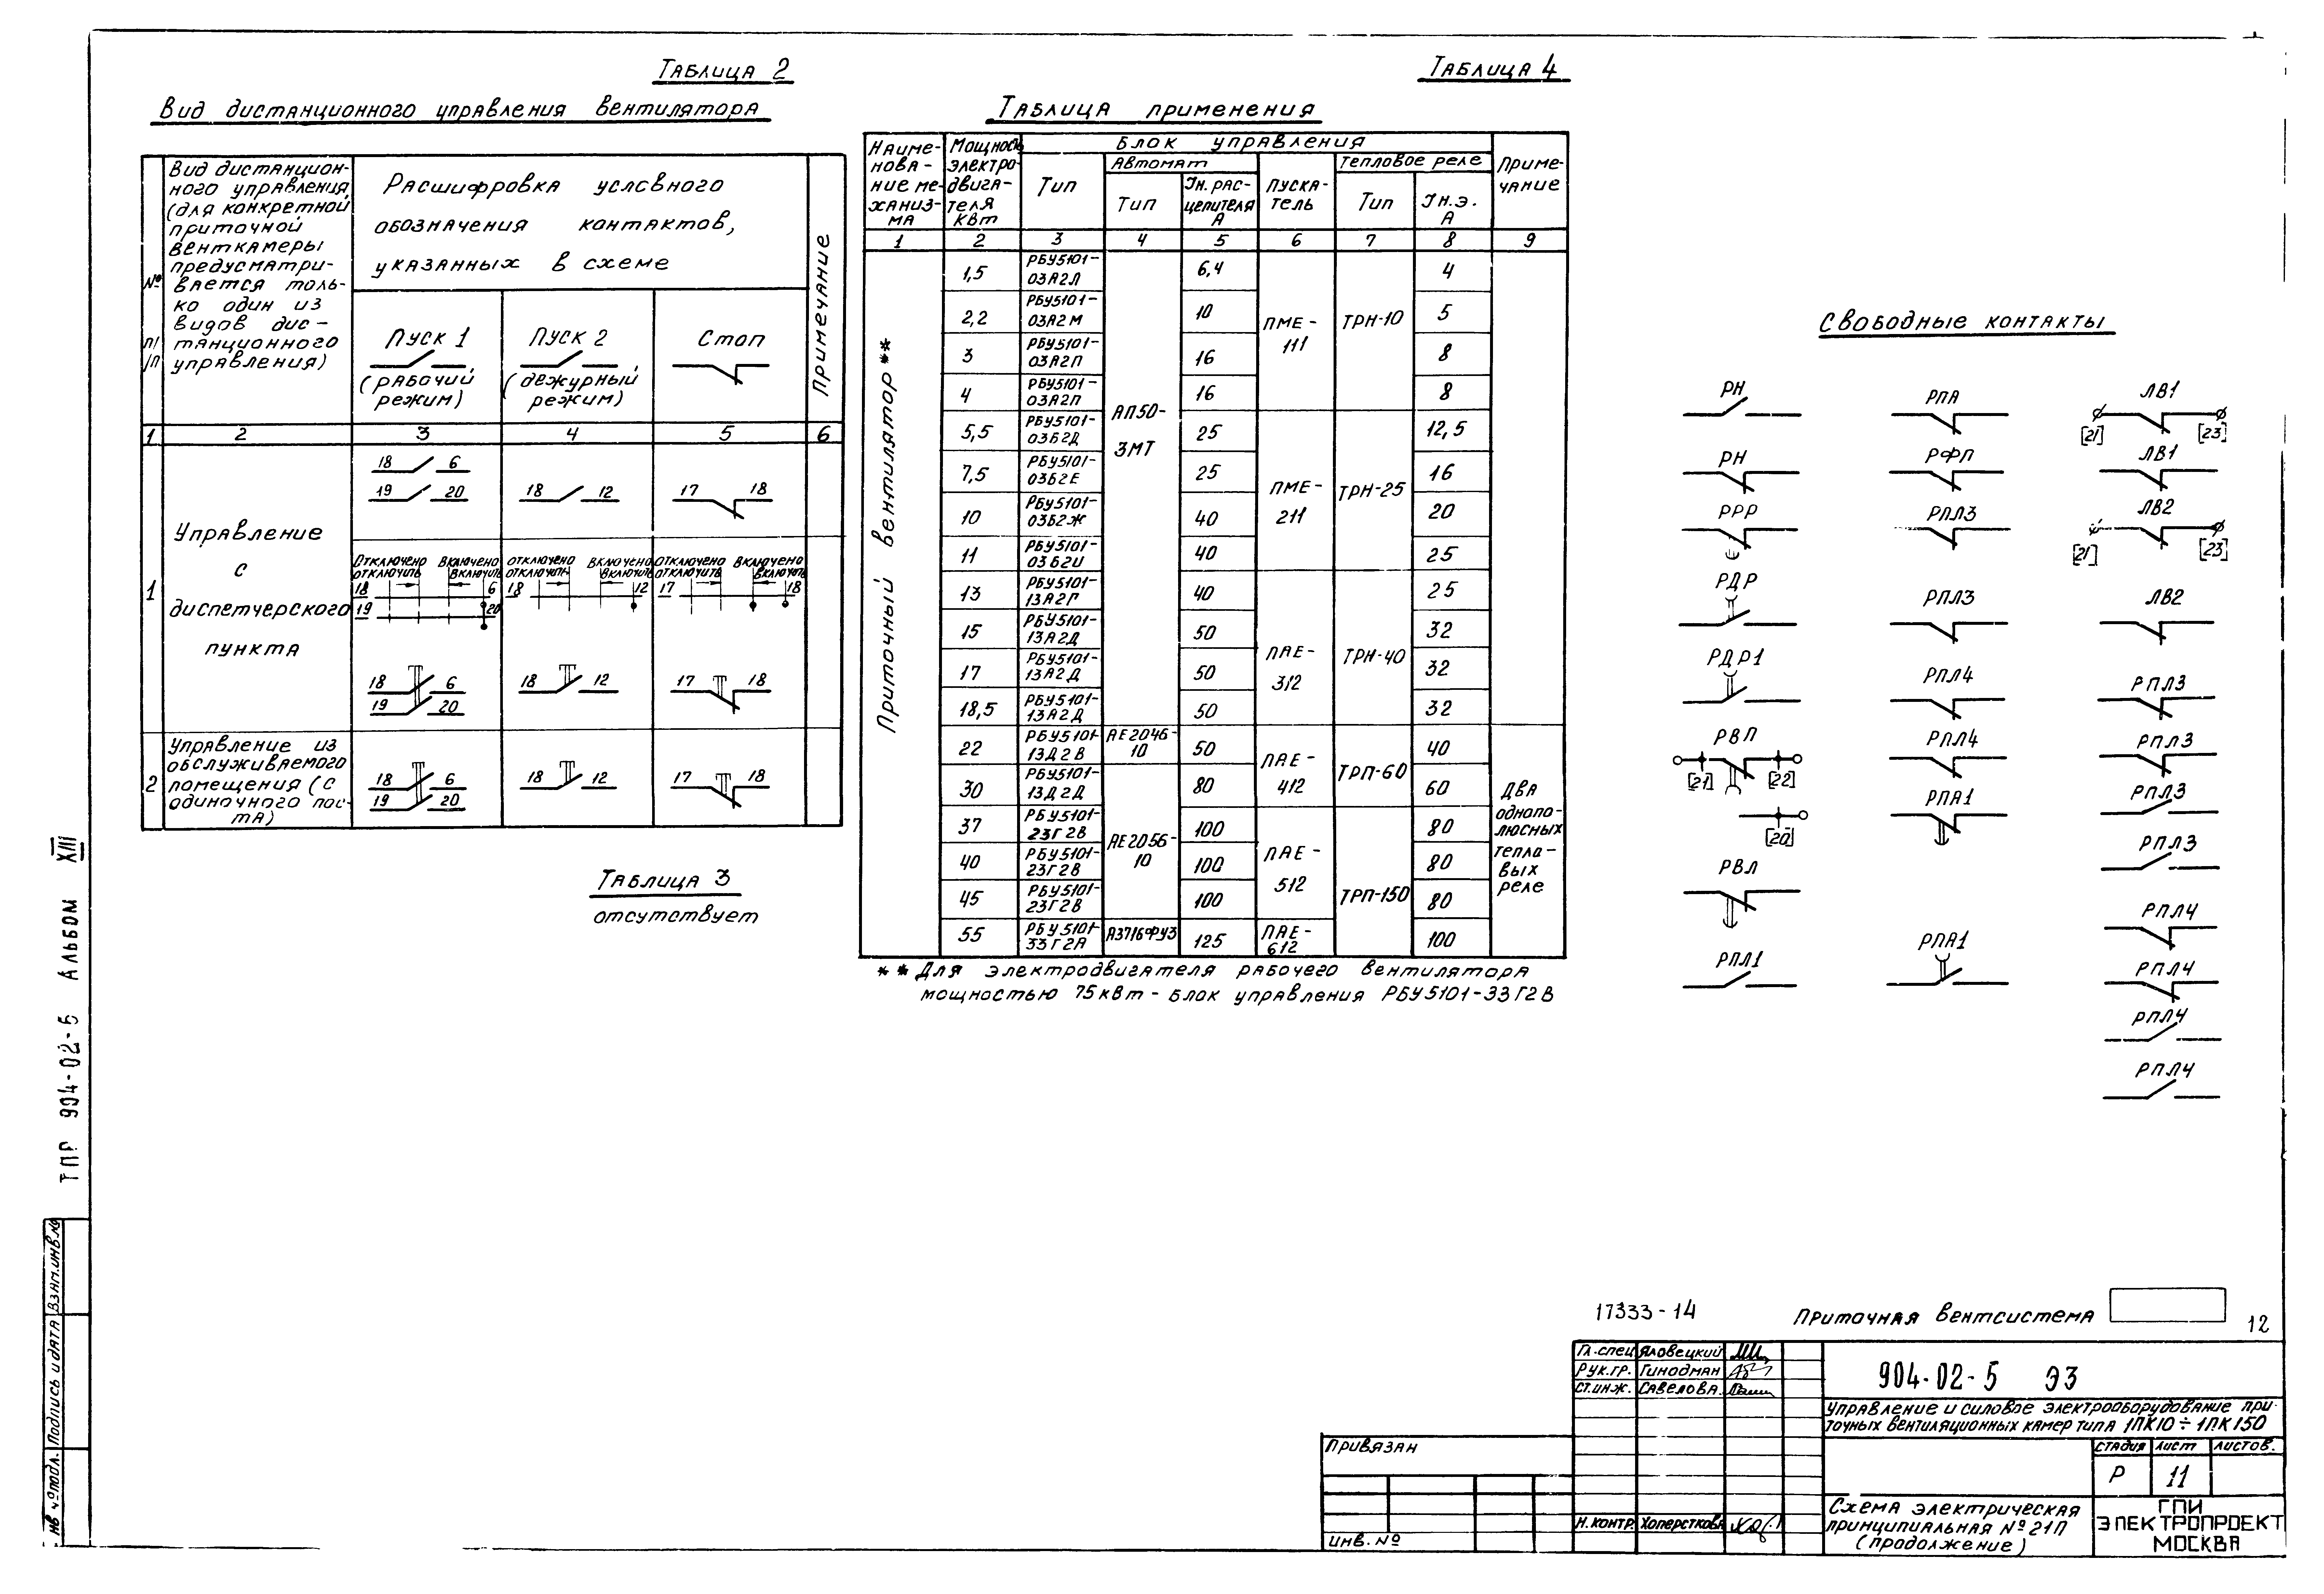 Таблица 2
Вид дистанционного управления вентилятора
№ п/п
Вид дистанцион-
ного управления
(для конкретной
приточной
венткамеры
предусматри-
вается толь-
ко один из
видов дис-
танционного
управления)
Расшифровка условного
обозначения контактов,
указанных в схеме
Примечание
Пуск 1
(рабочий
режим)
Пуск 2
(дежурный
режим)
Стоп
1 2 3 4 5 6
1
Управление
с
диспетчерского
пункта
18 6
19 20
18 12
17 18
Отключено Включено
отключить включить
18 6
19 20
отключено включено
отключить включить
18 12
отключено включено
отключить включить
17 18
18 6
19 20
18 12
17 18
2
Управление из
обслуживаемого
помещения (с
одиночного пос-
та)
18 6
19 20
18 12
17 18
Таблица 3
отсутствует
Таблица 4
Таблица применения
Наиме-
нова-
ние ме-
ханиз-
ма
Мощность
электро-
двига-
теля
кВт
Блок управления
Тип
Автомат
Тип
Iн. рас-
цепителя
А
Пуска-
тель
Тепловое реле
Тип
Iн.э.
А
Приме-
чание
1 2 3 4 5 6 7 8 9
Приточный вентилятор**
1,5 РБУ5101-03А2Л 6,4 4
2,2 РБУ5101-03А2М 10 5
3 РБУ5101-03А2П 16 8
4 РБУ5101-03А2П 16 8
5,5 РБУ5101-03Б2Д 25 12,5
7,5 РБУ5101-03Б2Е 25 16
10 РБУ5101-03Б2Ж 40 20
11 РБУ5101-03Б2И 40 25
13 РБУ5101-13А2Г 40 25
15 РБУ5101-13А2Д 50 32
17 РБУ5101-13А2Д 50 32
18,5 РБУ5101-13А2Д 50 32
22 РБУ5101-13Д2В 50 40
30 РБУ5101-13Д2Д 80 60
37 РБУ5101-23Г2В 100 80
40 РБУ5101-23Г2В 100 80
45 РБУ5101-23Г2В 100 80
55 РБУ5101-33Г2А А3716ФУЗ 125 100
АП50-
3МТ
АЕ2046-
10
АЕ2056-
10
ПМЕ-
111
ПМЕ-
211
ПАЕ-
312
ПАЕ-
412
ПАЕ-
512
ПАЕ-
612
ТРН-10
ТРН-25
ТРН-40
ТРП-60
ТРП-150
Два
однопо-
люсных
тепло-
вых
реле
** Для электродвигателя рабочего вентилятора
мощностью 75кВт - блок управления РБУ5101-33Г2В
Свободные контакты
РН
РН
РРР
РДР
РДР1
РВП
[21] [22]
[20]
РВЛ
РПЛ1
РПА
РФП
РПЛ3
РПЛ3
РПЛ4
РПЛ4
РПА1
РПА1
ЛВ1
[21] [23]
ЛВ1
ЛВ2
[21] [23]
ЛВ2
РПЛ3
РПЛ3
РПЛ3
РПЛ3
РПЛ4
РПЛ4
РПЛ4
РПЛ4
ТПР 904-02-5 Альбом XIII
Взам.инв.№
Подпись и дата
Инв.№ подл.
17333-14
Приточная вентсистема
12
Гл.спец Яловецкий
Рук.гр. Гинодман
Ст.инж. Савелова
Н.контр. Хоперсткова
904-02-5 ЭЗ
Управление и силовое электрооборудование при-
точных вентиляционных камер типа 1ПК10÷1ПК150
Стадия Лист Листов.
Р 11
Схема электрическая
принципиальная №21П
(продолжение)
ГПИ
ЭЛЕКТРОПРОЕКТ
МОСКВА
Привязан
Инв. №